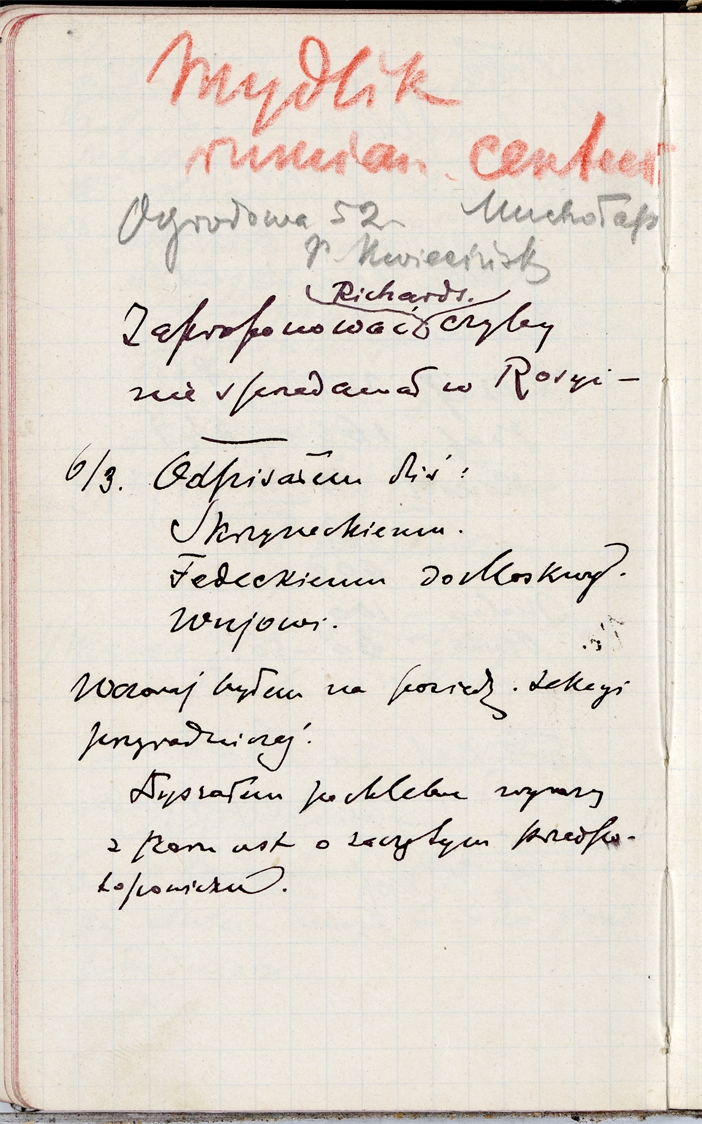 Mydlik
rumian. center
Ogrodowa 52 Muchołap
P Kwieciński
Richards.
Zaproponować czyby
nie sprzedawał w Rosyi –
6/3. Odpisałem dziś:
Skrzyneckiemu.
Fedeckiemu do Moskwy.
Wujowi.
Wczoraj byłem na posiedz. sekcyi
przyrodniczej.
Słyszałem pochlebne wyrazy
z paru ust o zaczętym przedpo-
topowiczu.